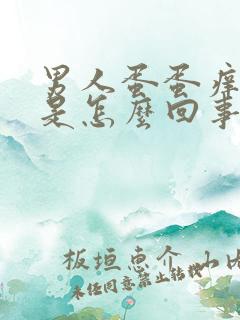 男人蛋蛋痒
是怎麼回事
板垣惠介 小
未任同意禁止转载